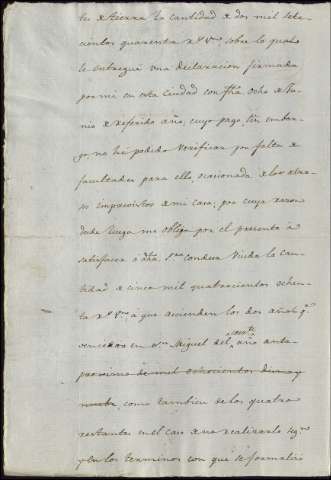 tes de tierra la cantidad de dos mil sete-
cientos quarenta r.s v.on sobre lo qual
le entregué una declaracion firmada
por mi en esta Ciudad con fha. ocho de Ju-
nio de referido año, cuyo pago, sin embar-
go no he podido verificar por falta de
facultades para ello, ocasionada de los atra-
sos imprevistos de mi casa; por cuya razon
desde luego me obligo por el presente á
satisfacer á dha. S.ra Condesa Viuda la can-
tidad de cinco mil quatrocientos ochen-
ta r.s v.on á que ascienden los dos años q.e
vencieron en S.n Miguel del corr.te año
proximo de mil ochocientos diez y
nueve, como tambien de los quatro
restantes en el caso de no realizarlo seg.n
y en los terminos con que se formalizó